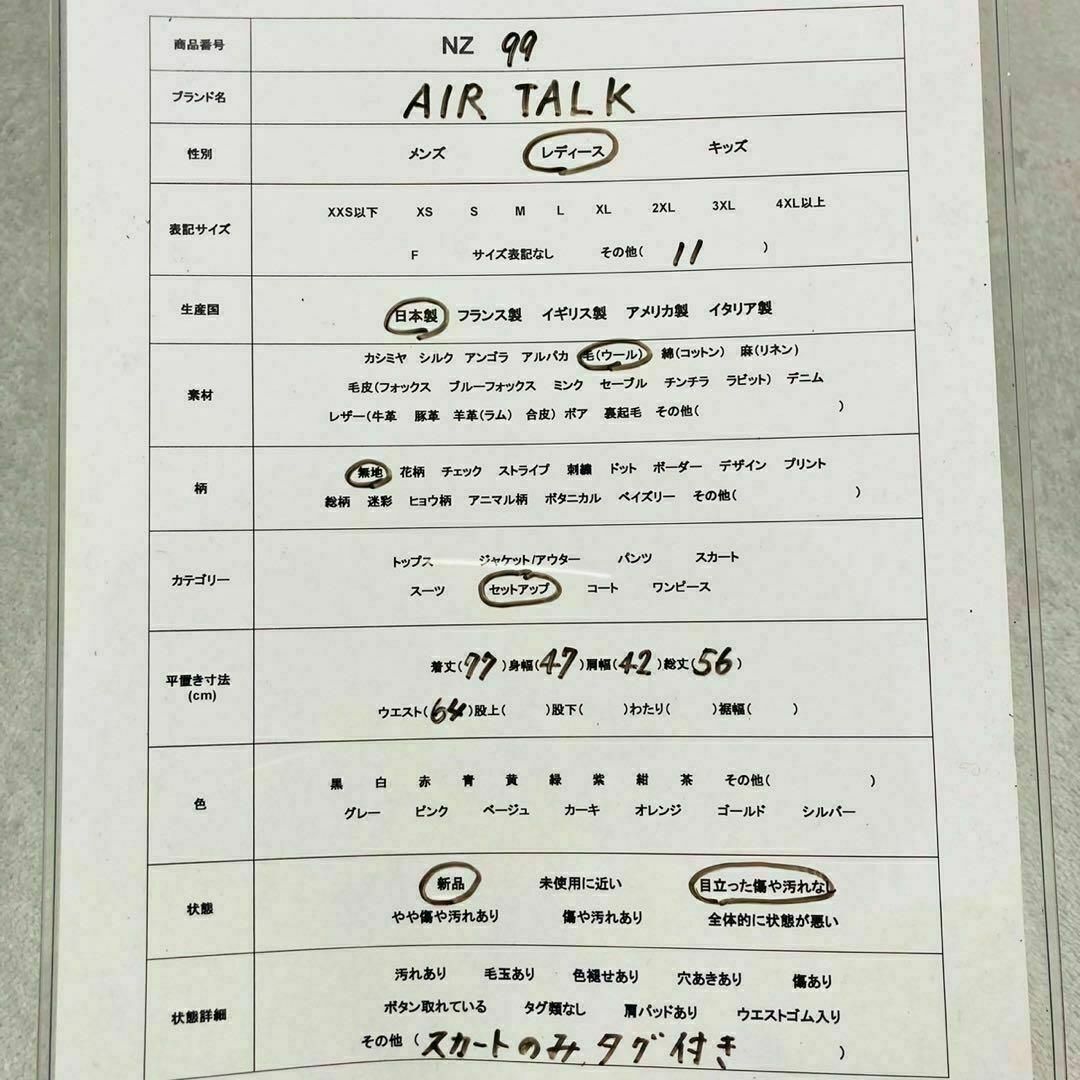 商品番号 NZ 99
ブランド名 AIR TALK
性別 メンズ レディース キッズ
表記サイズ
XXS以下 XS S M L XL 2XL 3XL 4XL以上
F サイズ表記なし その他( 11 )
生産国 日本製 フランス製 イギリス製 アメリカ製 イタリア製
素材
カシミヤ シルク アンゴラ アルパカ 毛(ウール) 綿(コットン) 麻(リネン)
毛皮(フォックス ブルーフォックス ミンク セーブル チンチラ ラビット) デニム
レザー(牛革 豚革 羊革(ラム) 合皮) ボア 裏起毛 その他( )
柄
無地 花柄 チェック ストライプ 刺繍 ドット ボーダー デザイン プリント
総柄 迷彩 ヒョウ柄 アニマル柄 ボタニカル ペイズリー その他( )
カテゴリー
トップス ジャケット/アウター パンツ スカート
スーツ セットアップ コート ワンピース
平置き寸法
(cm)
着丈(77)身幅(47)肩幅(42)総丈(56)
ウエスト(64)股上( )股下( )わたり( )裾幅( )
色
黒 白 赤 青 黄 緑 紫 紺 茶 その他( )
グレー ピンク ベージュ カーキ オレンジ ゴールド シルバー
状態
新品 未使用に近い 目立った傷や汚れなし
やや傷や汚れあり 傷や汚れあり 全体的に状態が悪い
状態詳細
汚れあり 毛玉あり 色褪せあり 穴あきあり 傷あり
ボタン取れている タグ類なし 肩パッドあり ウエストゴム入り
その他 (スカートのみ タグ付き )